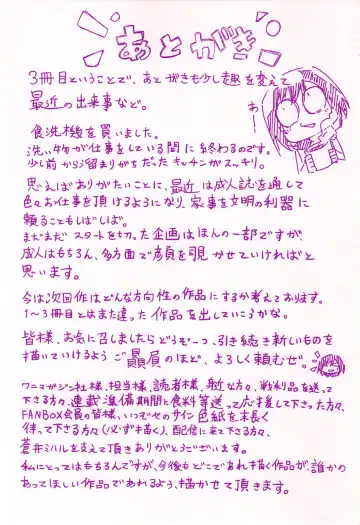 あとがき
3冊目ということで、あとがきも少し趣を変えて
最近の出来事など。
あ〜
食洗機を買いました。
洗い物が仕事をしている間に終わるのです。
少し前から溜まりがちだったキッチンがスッキリ。
思えばありがたいことに、最近は成人誌を通して
色々お仕事を頂けるようになり、家事を文明の利器に
頼ることもしばしば。
まだまだスタートを切った企画はほんの一部ですが、
成人はもちろん、多方面で顔を覗かせていければと
思います。
今は次回作はどんな方向性の作品にするか考えております。
1〜3冊目とはまた違った作品を出していこうかな。
皆様、お気に召しましたらどうぞ一つ、引き続き新しいものを
描いていけるようご贔屓のほど、よろしく頼むぜ。
ワニマガジン社様、担当様、読者様、身近な方々、戦利品を送って
下さる方々、連載準備期間に食料等送って応援して下さった方々、
FANBOX会員の皆様、いつぞやのサイン色紙を末長く
待って下さる方々(必ず描く)、配信に来て下さる方々、
蒼井ミハルを支えて頂きありがとうございます。
私にとってはもちろんですが、今後もどこであれ描く作品が、誰かの
あってほしい作品であれるよう、描かせて頂きます。